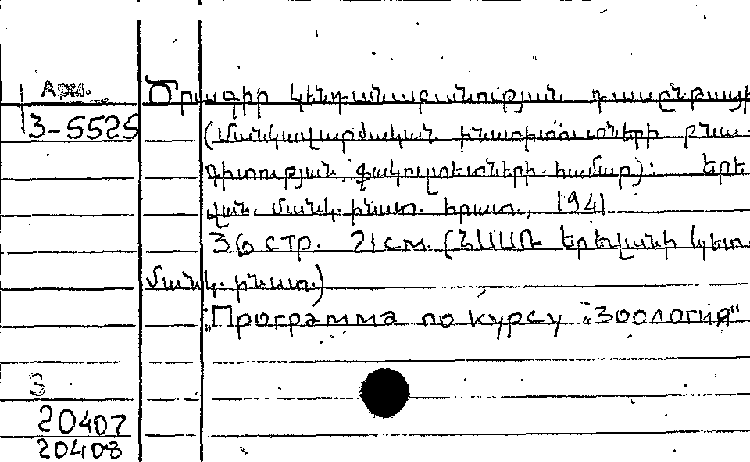 Арм.
Ծրագիր կենդանաբանության դասընթացի
3-5525
(Մանկավարժական ինստիտուտների բնա
գիտության ֆակուլտետների համար): Երե
վան, Մանկ. ինստ. հրատ., 1941
36 стр. 21 см. (ՀՍՍՌ Երեվանի Պետ.
մանկ. ինստ.)
"Программа по курсу "Зоология"
3
20407
20408